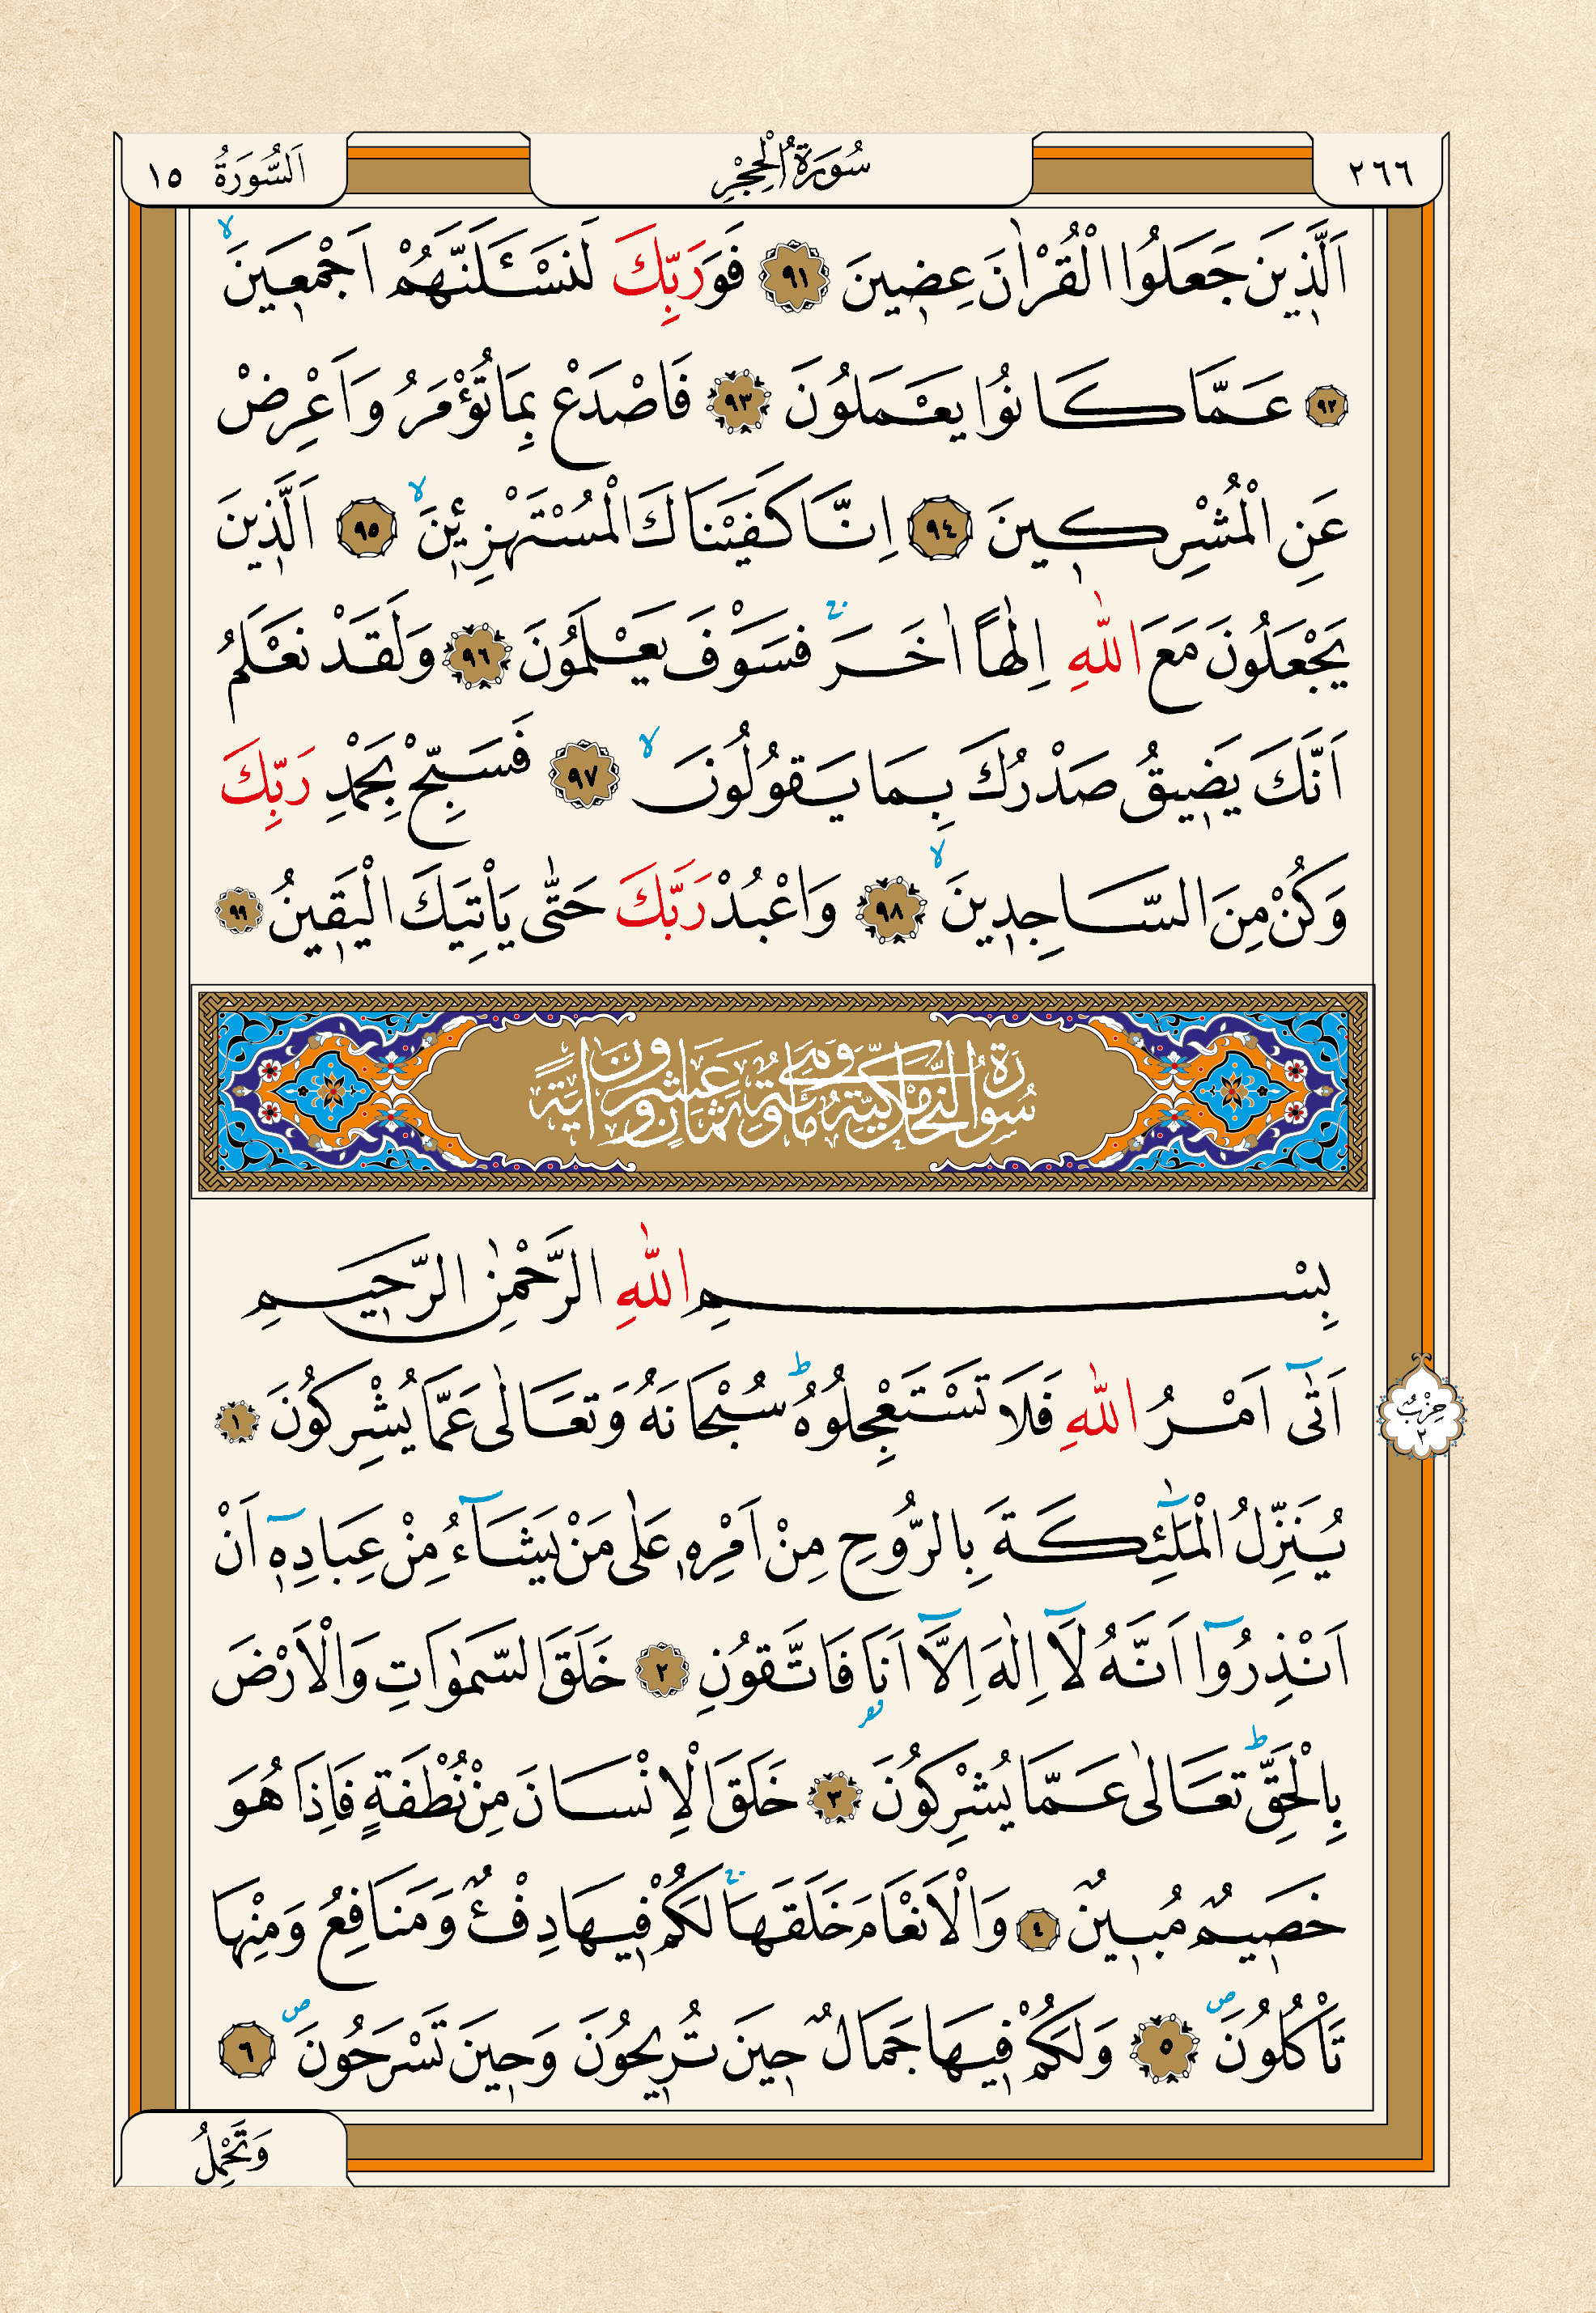 ٢٦٦ سُورَةُ الْحِجْرِ اَلسُّورَةُ ١٥
اَلَّذ۪ينَ جَعَلُوا الْقُرْاٰنَ عِض۪ينَ ﴿٩١﴾ فَوَرَبِّكَ لَنَسْـَٔلَنَّهُمْ اَجْمَع۪ينَۙ
﴿٩٢﴾ عَمَّا كَانُوا يَعْمَلُونَ ﴿٩٣﴾ فَاصْدَعْ بِمَا تُؤْمَرُ وَاَعْرِضْ
عَنِ الْمُشْرِك۪ينَ ﴿٩٤﴾ اِنَّا كَفَيْنَاكَ الْمُسْتَهْزِء۪ينَۙ ﴿٩٥﴾ اَلَّذ۪ينَ
يَجْعَلُونَ مَعَ اللّٰهِ اِلٰهاً اٰخَرَۚ فَسَوْفَ يَعْلَمُونَ ﴿٩٦﴾ وَلَقَدْ نَعْلَمُ
اَنَّكَ يَض۪يقُ صَدْرُكَ بِمَا يَقُولُونَۙ ﴿٩٧﴾ فَسَبِّحْ بِحَمْدِ رَبِّكَ
وَكُنْ مِنَ السَّاجِد۪ينَۙ ﴿٩٨﴾ وَاعْبُدْ رَبَّكَ حَتّٰى يَأْتِيَكَ الْيَق۪ينُ ﴿٩٩﴾
سُورَةُ النَّحْلِ مَكِّيَّةٌ وَهِيَ مِائَةٌ وَثَمَانٍ وَعِشْرُونَ اٰيَةً
بِسْمِ اللّٰهِ الرَّحْمٰنِ الرَّح۪يمِ
اَتٰٓى اَمْرُ اللّٰهِ فَلَا تَسْتَعْجِلُوهُۜ سُبْحَانَهُ وَتَعَالٰى عَمَّا يُشْرِكُونَ ﴿١﴾
حِزْبٌ ٢
يُنَزِّلُ الْمَلٰٓئِكَةَ بِالرُّوحِ مِنْ اَمْرِه۪ عَلٰى مَنْ يَشَٓاءُ مِنْ عِبَادِه۪ٓ اَنْ
اَنْذِرُٓوا اَنَّهُ لَٓا اِلٰهَ اِلَّٓا اَنَا۬ فَاتَّقُونِ ﴿٢﴾ خَلَقَ السَّمٰوَاتِ وَالْاَرْضَ
بِالْحَقِّۜ تَعَالٰى عَمَّا يُشْرِكُونَ ﴿٣﴾ خَلَقَ الْاِنْسَانَ مِنْ نُطْفَةٍ فَاِذَا هُوَ
خَص۪يمٌ مُب۪ينٌ ﴿٤﴾ وَالْاَنْعَامَ خَلَقَهَاۚ لَكُمْ ف۪يهَا دِفْءٌ وَمَنَافِعُ وَمِنْهَا
تَأْكُلُونَۖ ﴿٥﴾ وَلَكُمْ ف۪يهَا جَمَالٌ ح۪ينَ تُر۪يحُونَ وَح۪ينَ تَسْرَحُونَۖ ﴿٦﴾
وَتَحْمِلُ